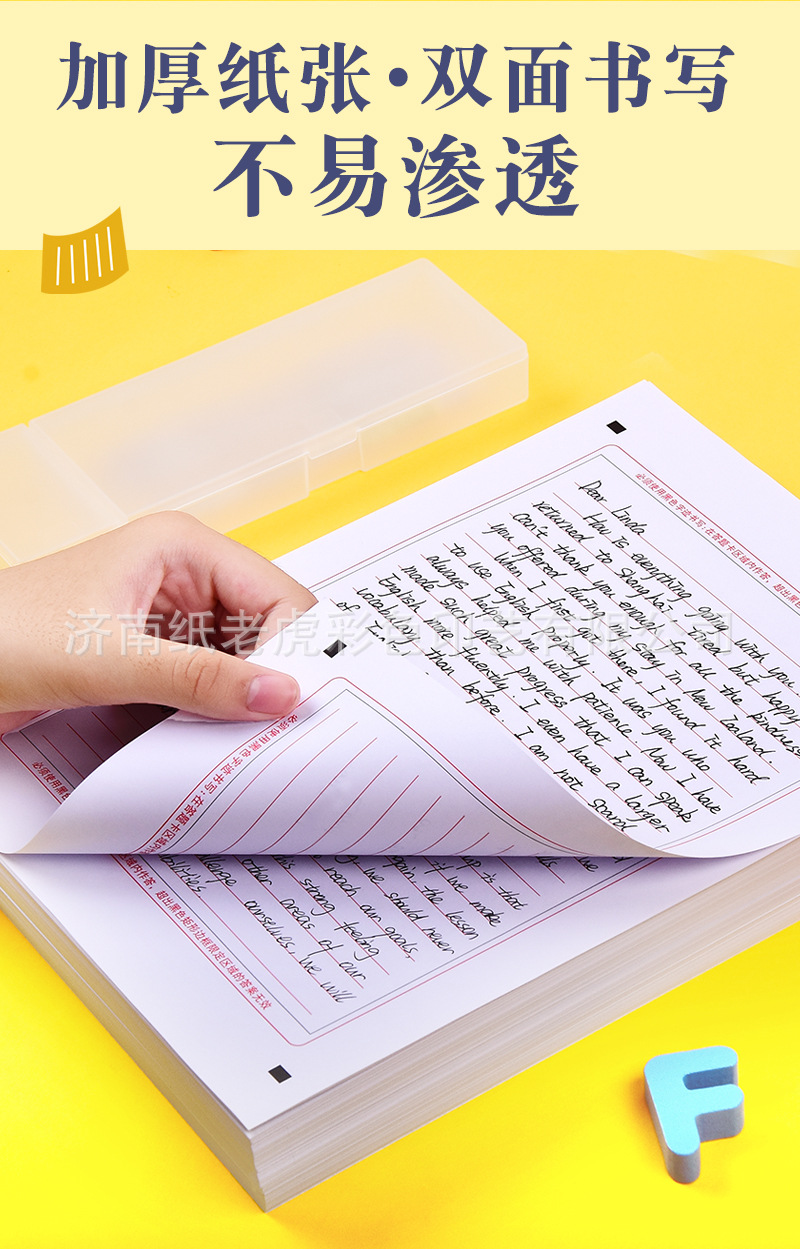 加厚纸张·双面书写
不易渗透
必须使用黑色字迹书写;在答题卡区域内作答,超出黑色
Dear Linda
How is everything going with you
returned to Shanghai, tired but happy
can't thank you enough for all the kindness
you offered during my stay in New Zealand.
When I first got there, I found it hard
to use English properly. It was you who
always helped me with patience. Now I have
made such great progress that I can speak
English fluently. I even have a larger
than before. I am not scared
of
济南纸老虎彩色印艺有限公司
必须使用黑色字迹书写;在答题卡区域
必须使用黑
域内作答,超出黑色矩形边框限定区域的答案无效
up is that
if we make
again, the lesson
we should never
reach our goals,
this strong feeling
other areas of our
ourselves, we will
F